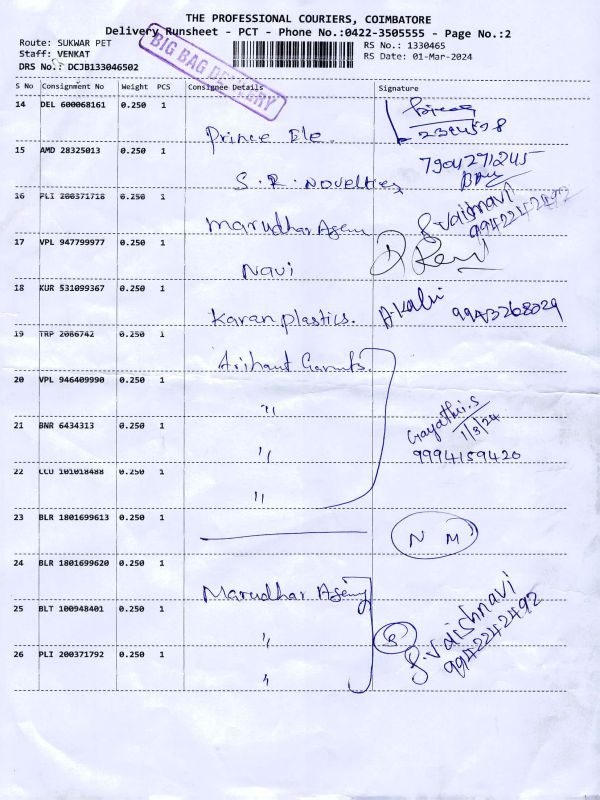 THE PROFESSIONAL COURIERS, COIMBATORE
Delivery Runsheet - PCT - Phone No.:0422-3505555 - Page No.:2
Route: SUKWAR PET
RS No.: 1330465
Staff: VENKAT
RS Date: 01-Mar-2024
DRS No.: DCJB133046502
BIG BAG DELIVERY
S No Consignment No Weight PCS Consignee Details Signature
14 DEL 600068161 0.250 1
Prince Ele.
15 AMD 28325013 0.250 1
S.R. Novelties
7904271245
16 PLI 200371718 0.250 1
Marudhar Agency
S. Vaishnavi
9942242492
17 VPL 947799977 0.250 1
Navi
18 KUR 531099367 0.250 1
Karan plastics.
A. Kalvi 9943268029
19 TRP 2086742 0.250 1
Arihant Garmts.
20 VPL 946409990 0.250 1
"
21 BNR 6434313 0.250 1
"
Gayathri.S
1/3/24
9994159420
22 CCU 101018488 0.250 1
"
23 BLR 1801699613 0.250 1
N M
24 BLR 1801699620 0.250 1
Marudhar Agency
25 BLT 100948401 0.250 1
"
3
S. Vaishnavi
9942242492
26 PLI 200371792 0.250 1
"